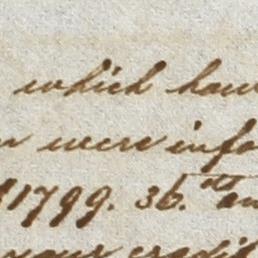 which hav
were info
1799. 36.
your credit